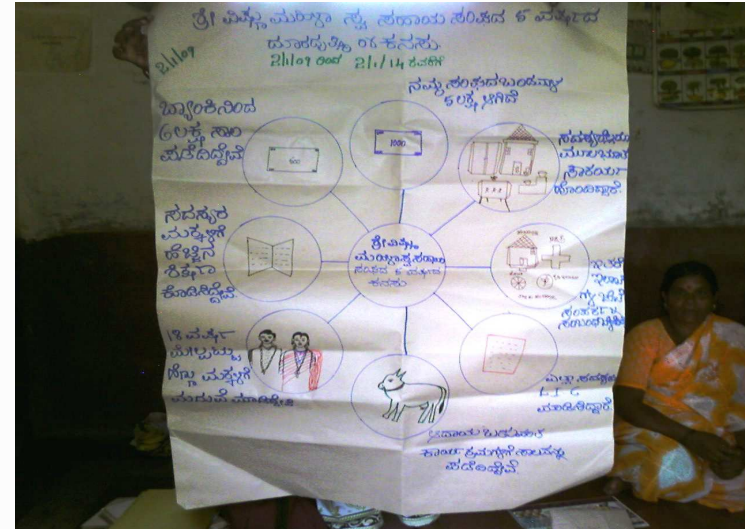 ಶ್ರೀ ವಿಷ್ಣು ಮಹಿಳಾ ಸ್ವ ಸಹಾಯ ಸಂಘದ 5 ವರ್ಷದ
ದೂರದೃಷ್ಟಿಯ ಕನಸು.
2/1/09 ರಿಂದ 2/1/14 ರವರೆಗೆ
2/1/09
ನಮ್ಮ ಸಂಘದ ಬಂಡವಾಳ
5 ಲಕ್ಷ ಆಗಿದೆ
ಬ್ಯಾಂಕಿನಿಂದ
ಲಕ್ಷ ಸಾಲ
ಪಡೆದಿದ್ದೇವೆ
500
1000
ಮೂಲಭೂತ
ಸೌಕರ್ಯ
ಹೊಂದಿದ್ದಾರೆ.
ಸದಸ್ಯರ
ಮಕ್ಕಳಿಗೆ
ಹೆಚ್ಚಿನ
ಶಿಕ್ಷಣ
ಕೊಡಿಸಿದ್ದೇವೆ.
ಶ್ರೀ ವಿಷ್ಣು
ಮಹಿಳಾ ಸ್ವ ಸಹಾಯ
ಸಂಘದ 5 ವರ್ಷದ
ಕನಸು
ಇತರೆ
ಇಲಾಖೆ
18 ವರ್ಷ
ಮೇಲ್ಪಟ್ಟ
ಹೆಣ್ಣು ಮಕ್ಕಳಿಗೆ
ಮದುವೆ
ಎಲ್ಲಾ ಸದಸ್ಯರು
LIC
ಮಾಡಿಸಿದ್ದಾರೆ.
ಆದಾಯ
ಕಾರ್ಯಕ್ರಮಗಳಿಗೆ ಸಾಲವನ್ನು
ಪಡೆದಿದ್ದೇವೆ